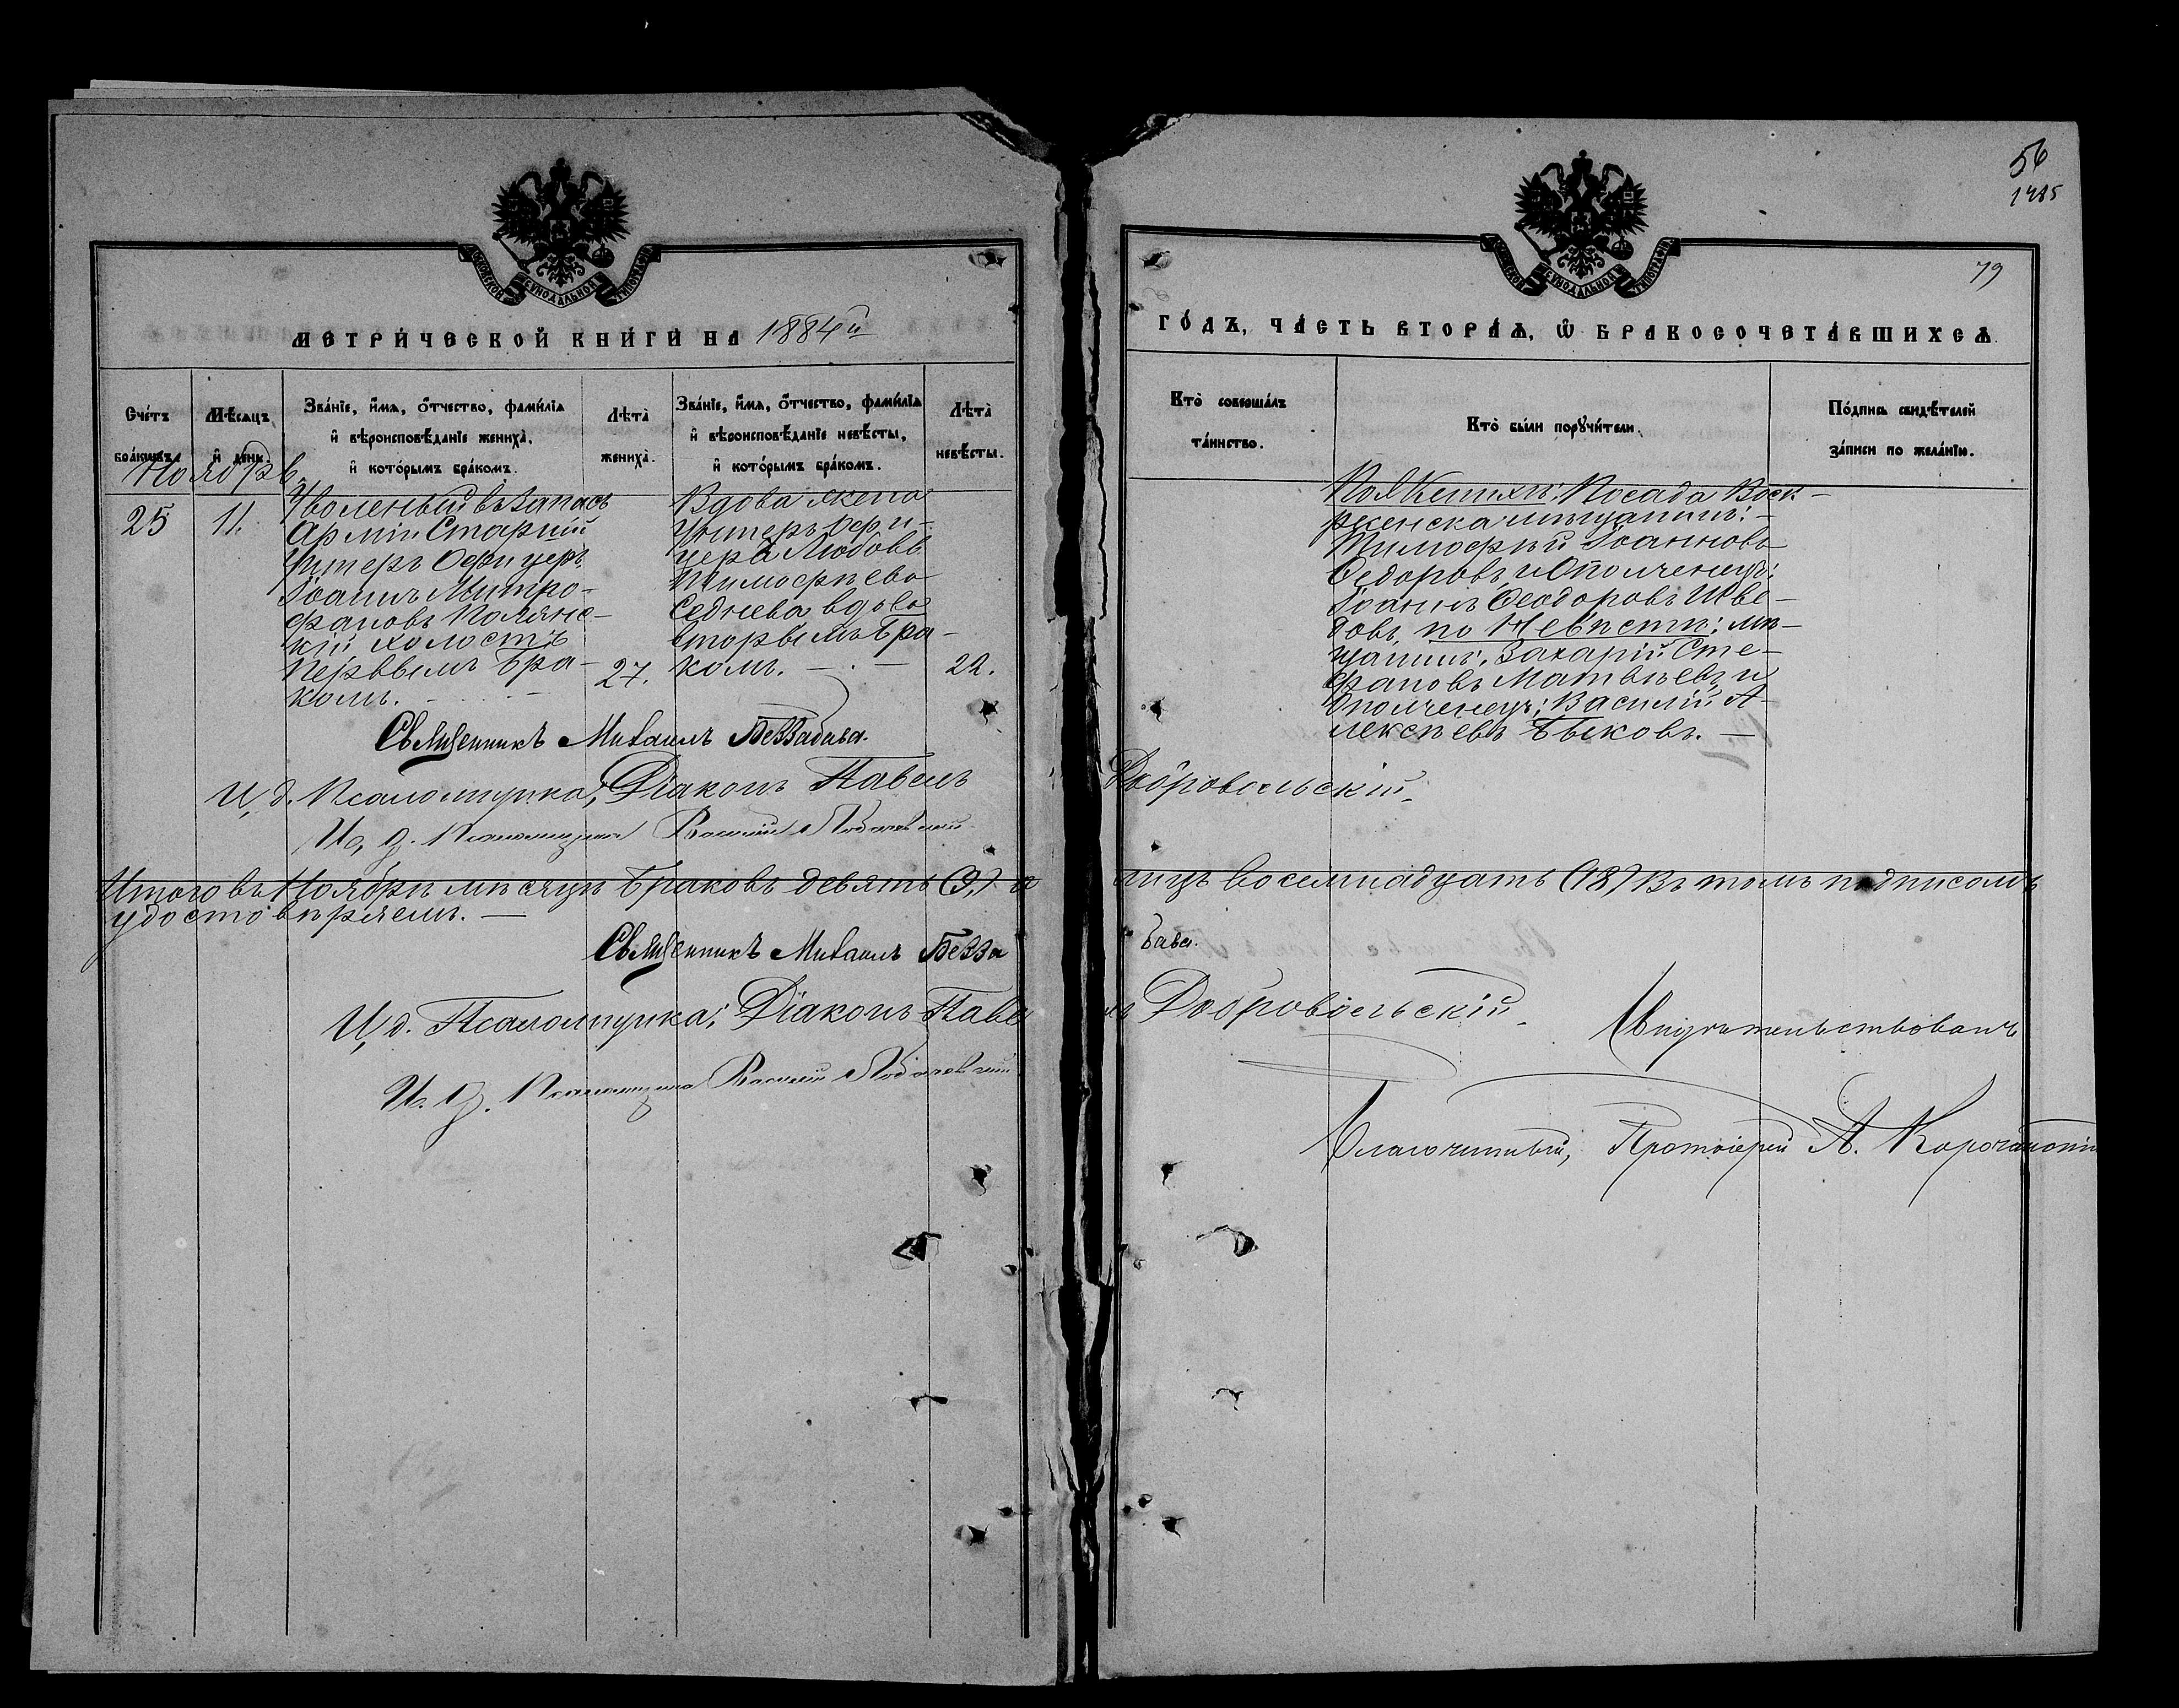 56
1485
79
МОСКОВСКОЙ СѴНОДАЛЬНОЙ ТИПОГРАФІИ
МОСКОВСКОЙ СѴНОДАЛЬНОЙ ТИПОГРАФІИ
МЕТРИ́ЧЕСКОЙ КНИ́ГИ НА 1884й
ГО́ДЪ, ЧА́СТЬ ВТОРА́Ѧ, Ѡ҆ БРАКОСОЧЕТА́ВШИХСѦ.
Сче́тъ бра́кѡвъ.
Мѣ́сѧцъ и҆ день.
Зва́нїе, и҆́мѧ, ѻ҆́тчество, фами́лїѧ
и҆ вѣроисповѣ́данїе жениха̀,
и҆ кото́рымъ бра́комъ.
Лѣта̀ жениха̀.
Зва́нїе, и҆́мѧ, ѻ҆́тчество, фами́лїѧ
и҆ вѣроисповѣ́данїе невѣ́сты,
и҆ кото́рымъ бра́комъ.
Лѣта̀ невѣ́сты.
Кто̀ соверша́лъ
та́инство.
Кто̀ бы́ли порꙋчи́тели.
По́дпись свидѣ́телей
за́писи по жела́нїю.
Ноябрь
25
11.
Уволеный въ Запасъ
Арміи Старшій
Унтеръ Офицеръ
Іоаннъ Митро-
фановъ Полянс-
кій холостъ
Первымъ Бра-
комъ.
27.
Вдова жена
Унтеръ Офи-
цера Любовь
Тимофѣева
Седнева вдова
вторымъ Бра-
комъ.
22.
По Женихѣ: Посада Воск-
ресенска мѣщанинъ:
Тимофѣй Іоанновъ
Федоровъ и Ополченецъ:
Іоаннъ Феодоровъ Шве-
довъ, по Невѣстѣ: мѣ-
щанинъ, Захарій Сте-
фановъ Матвѣевъ и
Ополченецъ: Василій А-
лексѣевъ Быковъ. —
Священникъ Михаилъ Беззабава.
И, д. Псаломщика, Діаконъ Павелъ Добровольскій.
И, д. Псаломщика Василій
Итого въ Ноябрѣ мѣсяцѣ Браковъ девять (9,) а лицъ восемнадцать (18) Въ томъ подписомъ
удостовѣряемъ. —
Священникъ Михаилъ Беззабава.
И, д. Псаломщика, Діаконъ Павелъ Добровольскій.
И. д. Псаломщика Василій
Свидѣтельствовалъ
Благочинный, Протоіерей А.